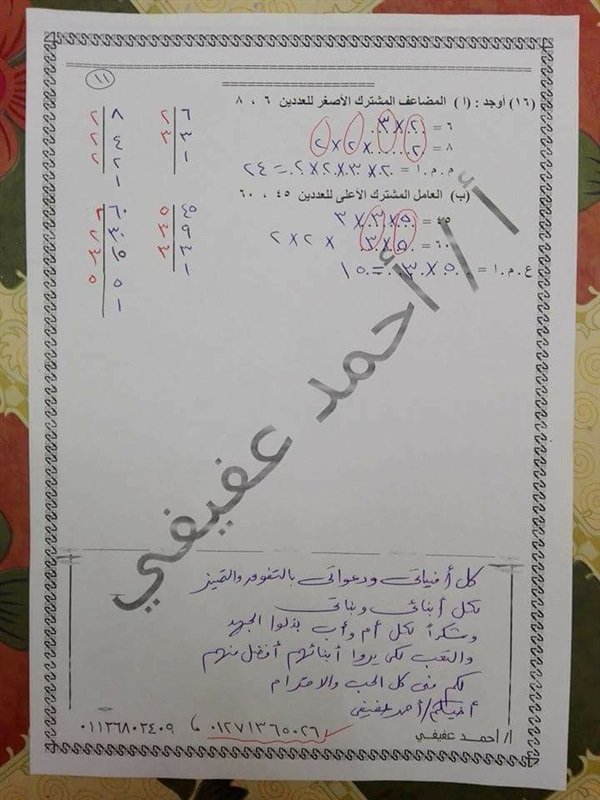 ١١
(١٦) أوجد : (أ) المضاعف المشترك الأصغر للعددين ٦ ، ٨
٦ = ٢ × ٣
٨ = ٢ × ٢ × ٢
م.م.أ = ٢ × ٣ × ٢ × ٢ = ٢٤
٦ ٢
٣ ٣
١
٨ ٢
٤ ٢
٢ ٢
١
(ب) العامل المشترك الأعلى للعددين ٤٥ ، ٦٠
٤٥ = ٥ × ٣ × ٣
٦٠ = ٥ × ٣ × ٢ × ٢
ع.م.أ = ٥ × ٣ = ١٥
٤٥ ٥
٩ ٣
٣ ٣
١
٦٠ ٢
٣٠ ٢
١٥ ٣
٥ ٥
١
أ/ أحمد عفيفي
كل أمنياتى ودعواتى بالتفوق والتميز
لكل أبنائى وبناتى
وشكراً لكل أم وأب بذلوا الجهد
والتعب لكى يروا أبنائهم أفضل منهم
لكم منى كل الحب والاحترام
أخيكم/ أحمد عفيفى
أ/ احمد عفيفي ٠١٢٧١٣٦٥٠٢٦ ، ٠١١٢٦٨٠٢٤٠٩